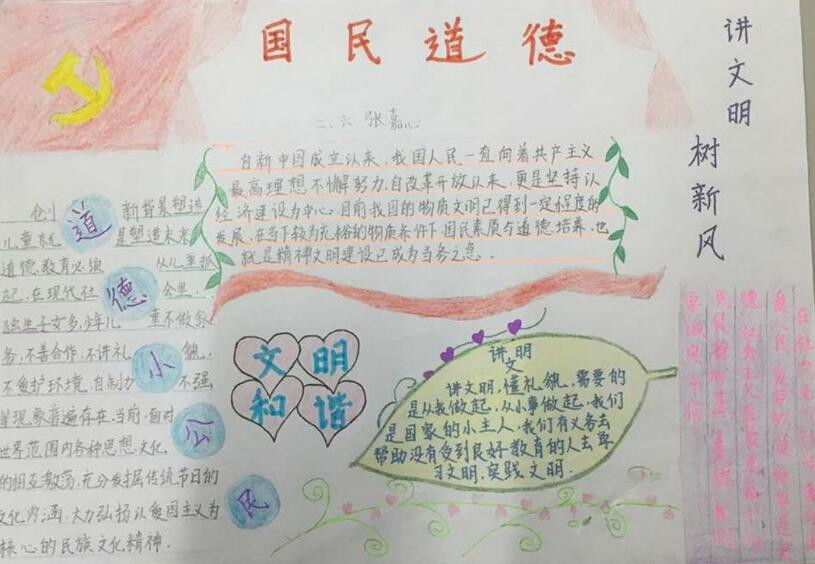 国民道德
二、六 张嘉心
自新中国成立以来，我国人民一直向着共产主义
最高理想不懈努力，自改革开放以来，更是坚持以
经济建设为中心。目前我国的物质文明已得到一定程度的
发展，在当下较为充裕的物质条件下，国民素质与道德培养，也
就是精神文明建设已成为当务之急。
讲文明
树新风
创 新背景塑造
儿童就 是塑造未来
道德教育必须 从儿童抓
起，在现代社 会里，
独生子女多，少年儿 童不做家
务，不善合作，不讲礼 貌，
不爱护环境，自制力 不强
等现象普遍存在，当前，面对
世界范围内各种思想文化
的相互激荡，充分发掘传统节日的
文化内涵，大力弘扬以爱国主义为
核心的民族文化精神．
道
德
小
公
民
文明
和谐
讲文明
讲文明，懂礼貌，需要的
是从我做起，从小事做起，我们
是国家的小主人，我们有义务去
帮助没有受到良好教育的人去学
习文明，实践文明．